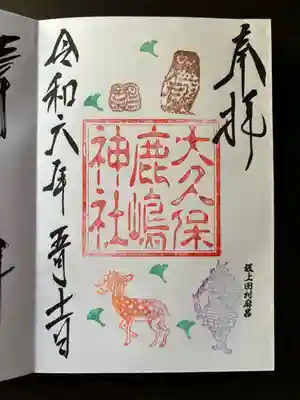 奉拝
大久保
鹿嶋
神社
坂上田村麻呂
令和六年